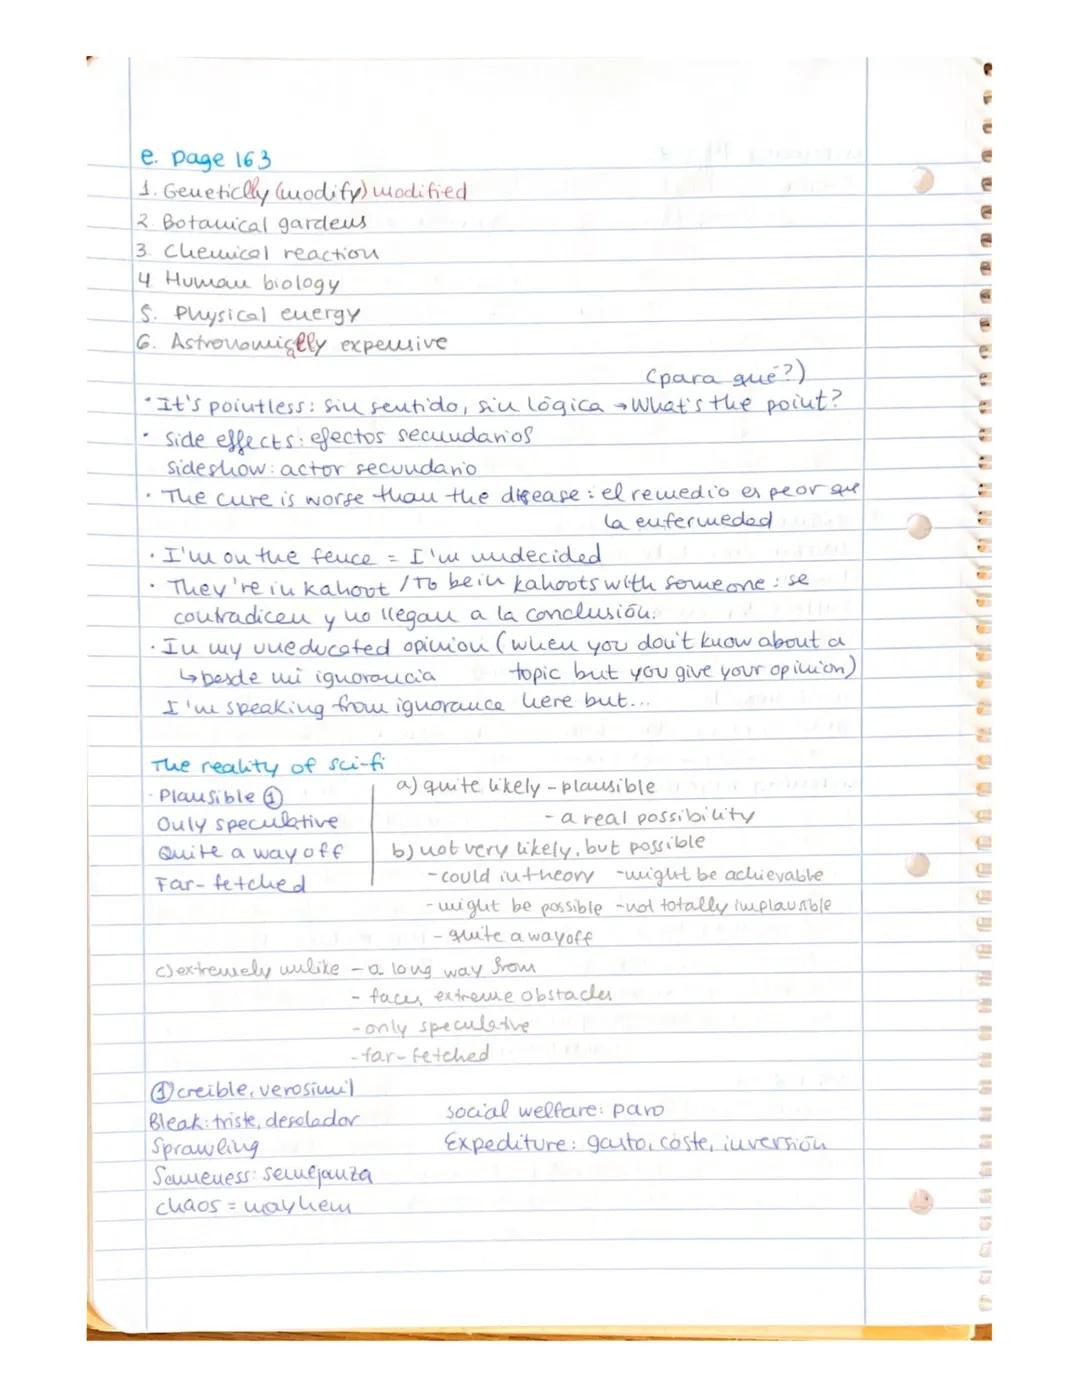 e. page 163
1. Genetically (modify) modified
2. Botanical gardens
3. Chemical reaction
4. Human biology
5. Physical energy
6. Astronomically expensive
(para qué?)
· It's pointless: sin sentido, sin lógica → What's the point?
· Side effects: efectos secundarios
sideshow: actor secundario
· The cure is worse than the disease: el remedio es peor que
la enfermedad
· I'm on the fence = I'm undecided
· They're in kahoot / To be in kahoots with someone: se
contradicen y no llegan a la conclusión.
· In my uneducated opinion (when you don't know about a
↳ Desde mi ignorancia topic but you give your opinion)
I'm speaking from ignorance here but...
The reality of sci-fi
· Plausible ① a) quite likely - plausible
Only speculative - a real possibility
Quite a way off b) not very likely, but possible
Far-fetched - could in theory - might be achievable
- might be possible - not totally implausible
- quite a way off
c) extremely unlike - a long way from
- faces extreme obstacles
- only speculative
- far-fetched
① creible, verosimil
Bleak: triste, desolador social welfare: paro
Sprawling Expediture: gasto, coste, inversión
Sameness: semejanza
chaos = mayhem